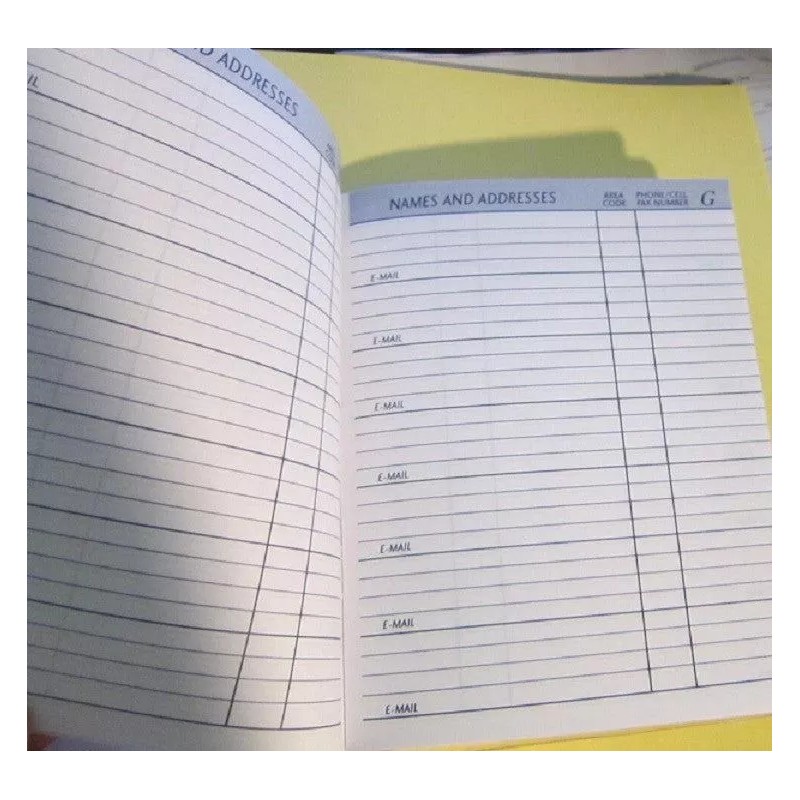 D ADDRESSES
IL
NAMES AND ADDRESSES
AREA CODE
PHONE/CELL FAX NUMBER
G
E-MAIL
E-MAIL
E-MAIL
E-MAIL
E-MAIL
E-MAIL
E-MAIL